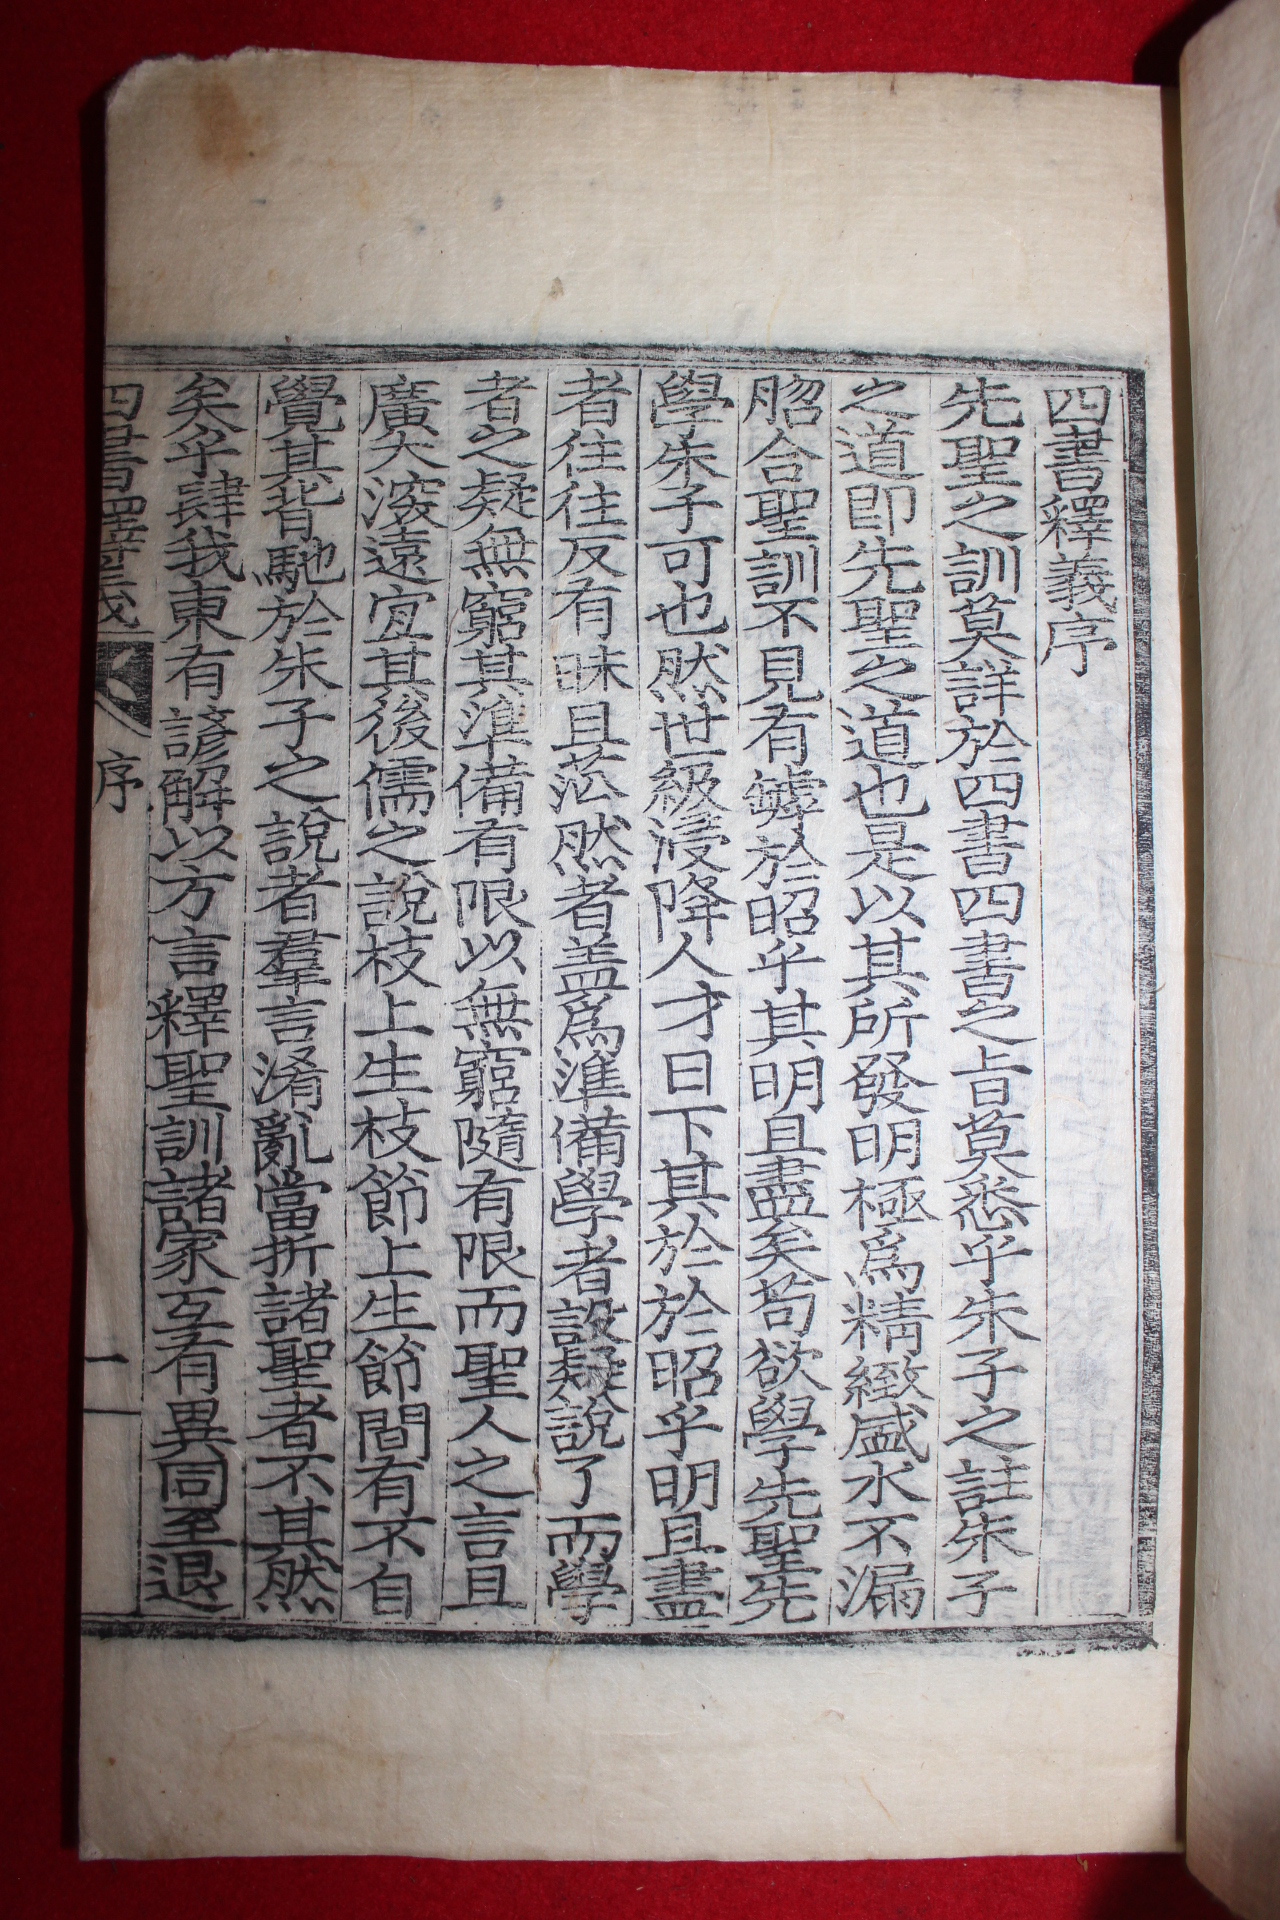 四書釋義序
先聖之訓莫詳於四書四書之旨莫悉乎朱子之註朱子
之道即先聖之道也是以其所發明極爲精緻盛水不漏
脗合聖訓不見有罅於昭乎其明且盡矣苟欲學先聖先
學朱子可也然世級浸降人才日下其於於昭乎明且盡
者往往反有昧且茫然者盖爲準備學者設疑說了而學
者之疑無窮其準備有限以無窮隨有限而聖人之言且
廣大深遠宜其後儒之說枝上生枝節上生節間有不自
覺其背馳於朱子之說者羣言淆亂當折諸聖者不其然
矣乎肆我東有諺解以方言釋聖訓諸家互有異同至退
四書釋義 序 一